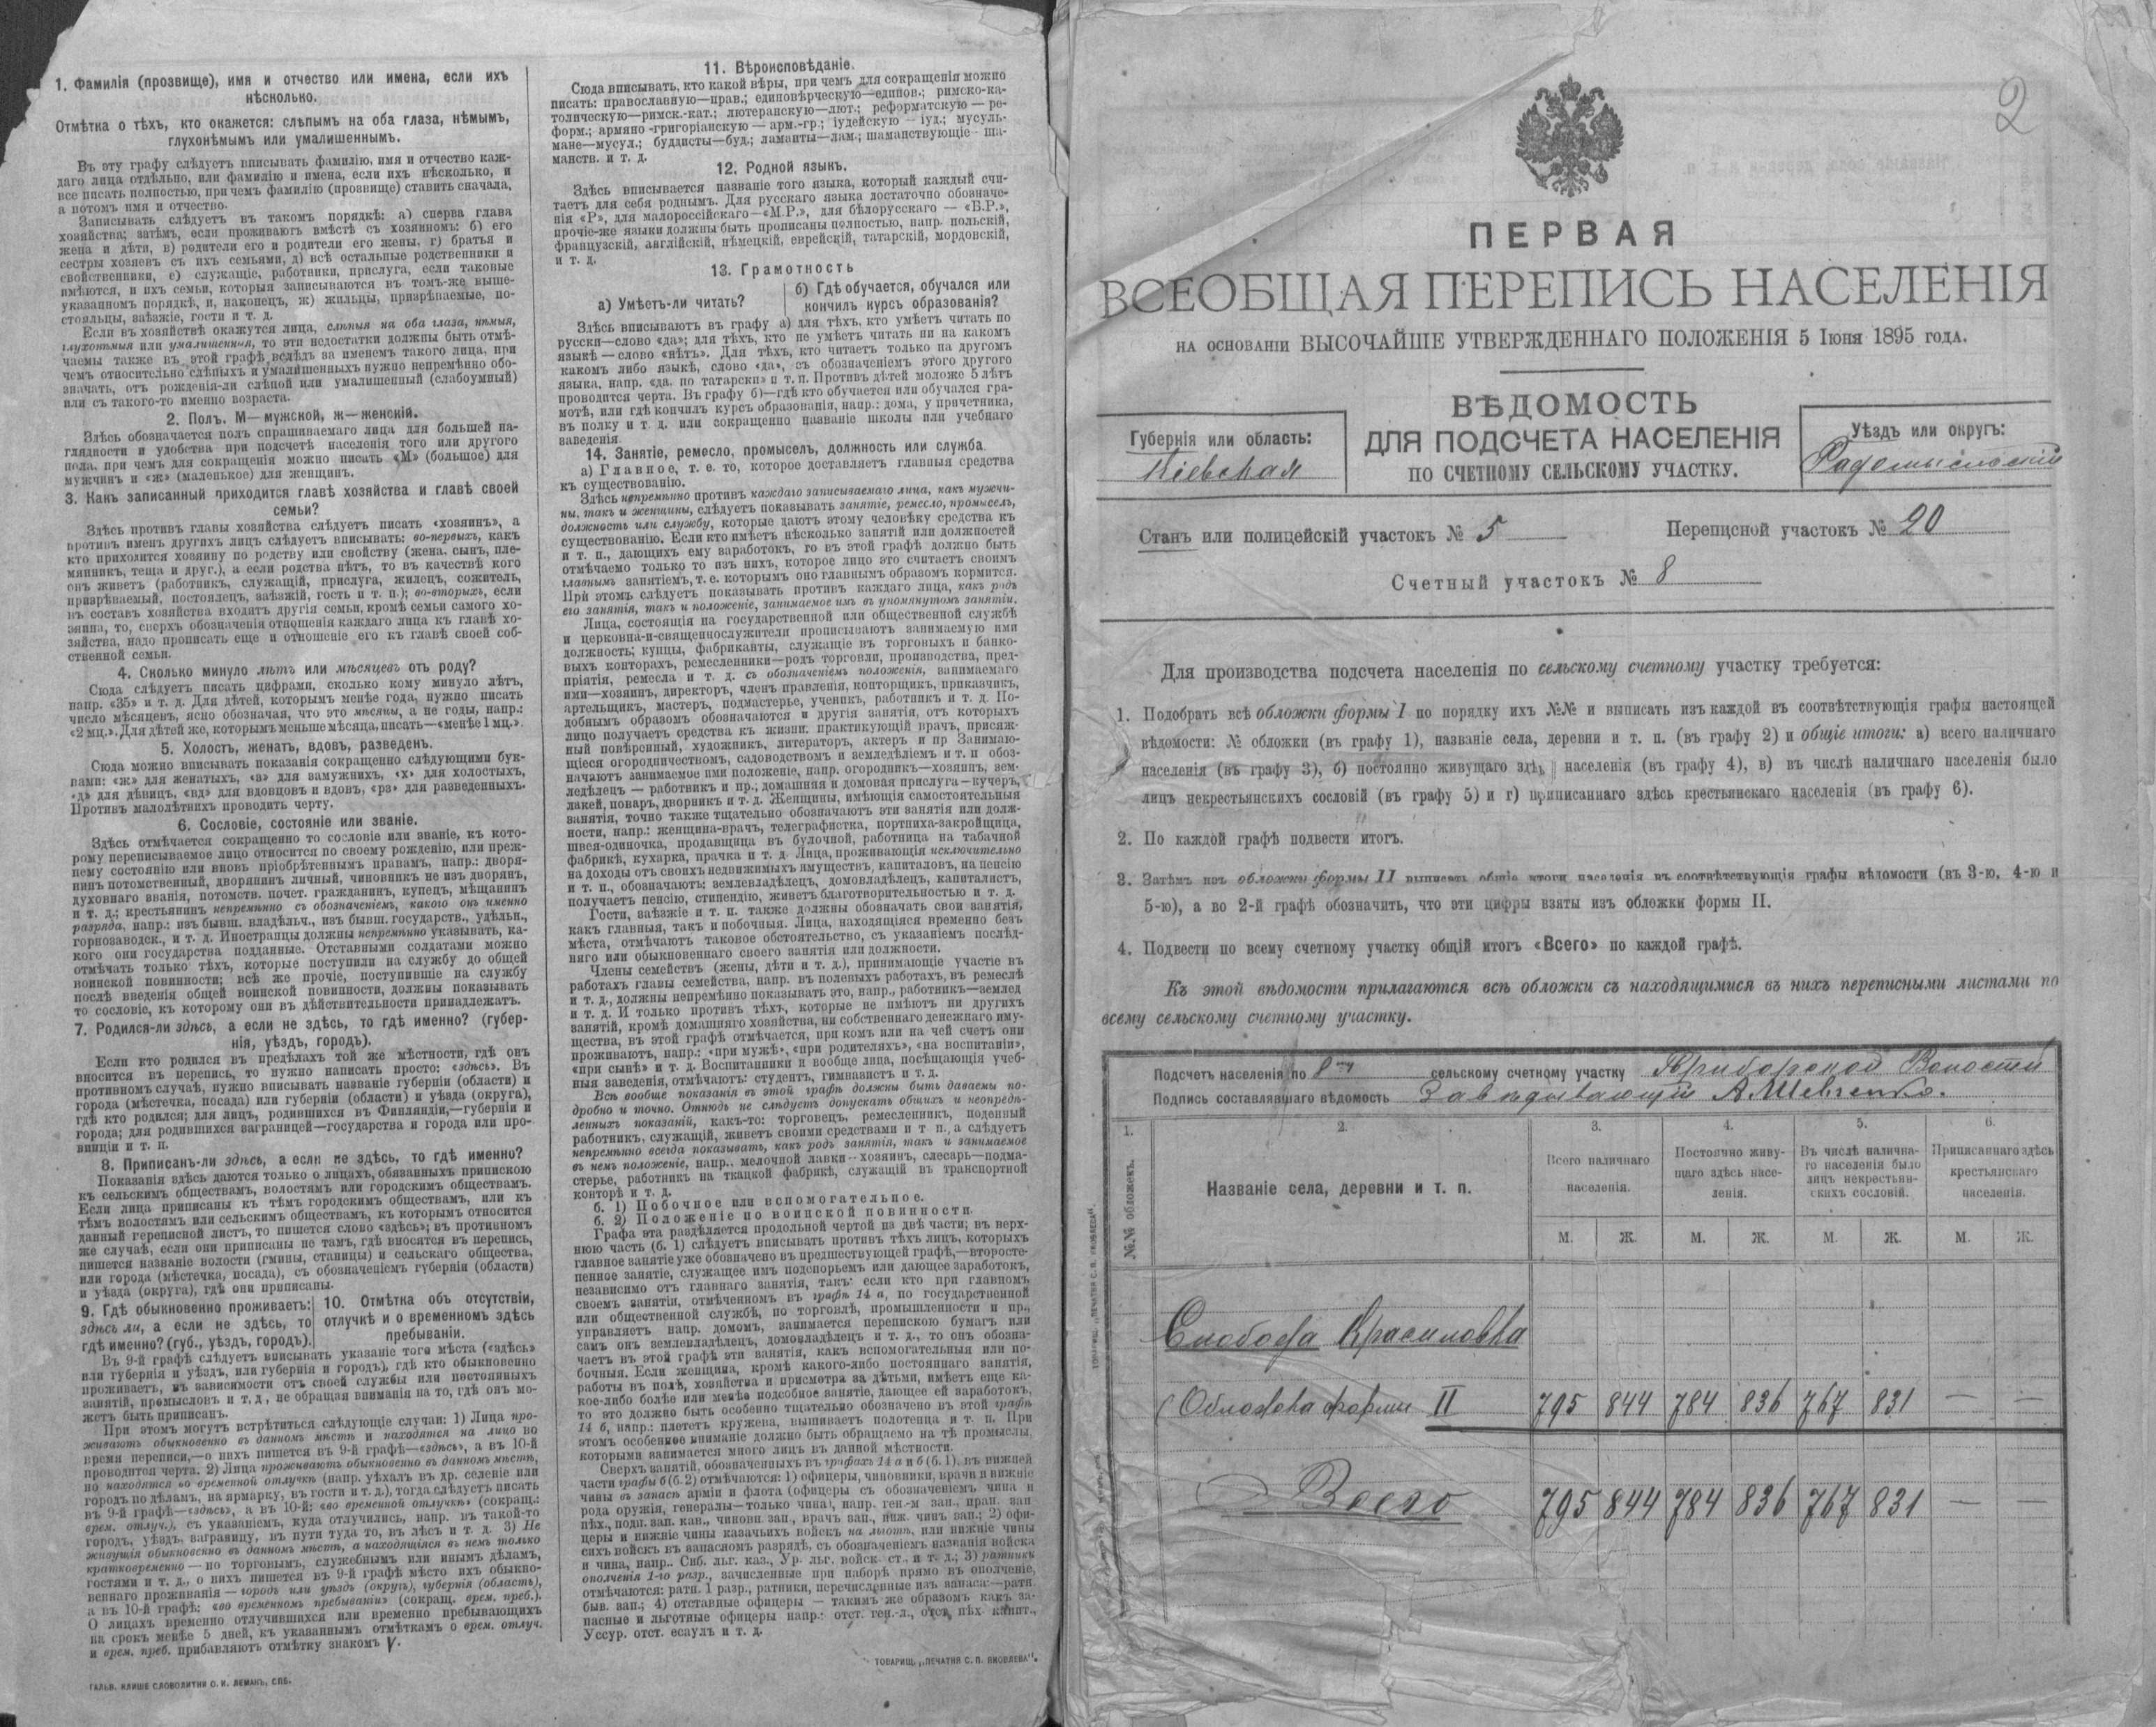 1. Фамилія (прозвище), имя и отчество или имена, если ихъ
нѣсколько.
Отмѣтка о тѣхъ, кто окажется: слѣпымъ на оба глаза, нѣмымъ,
глухонѣмымъ или умалишеннымъ.
Въ эту графу слѣдуетъ вписывать фамилію, имя и отчество каж-
даго лица отдѣльно, или фамилію и имена, если ихъ нѣсколько, и
все писать полностью, при чемъ фамилію (прозвище) ставить сначала,
а потомъ имя и отчество.
Записывать слѣдуетъ въ такомъ порядкѣ: а) сперва глава
хозяйства; затѣмъ, если проживаютъ вмѣстѣ съ хозяиномъ: б) его
жена и дѣти, в) родители его и родители его жены, г) братья и
сестры хозяевъ съ ихъ семьями, д) всѣ остальные родственники и
свойственники, е) служащіе, работники, прислуга, если таковые
имѣются, и ихъ семьи, которыя записываются въ томъ-же выше-
указанномъ порядкѣ, и, наконецъ, ж) жильцы, призрѣваемые, по-
стояльцы, заѣзжіе, гости и т. д.
Если въ хозяйствѣ окажутся лица, слѣпыя на оба глаза, нѣмыя,
глухонѣмыя или умалишенныя, то эти недостатки должны быть отмѣ-
чаемы также въ этой графѣ вслѣдъ за именемъ такого лица, при
чемъ относительно слѣпыхъ и умалишенныхъ нужно непремѣнно обо-
значать, отъ рожденія-ли слѣпой или умалишенный (слабоумный)
или съ такого-то именно возраста.
2. Полъ. М—мужской, ж—женскій.
Здѣсь обозначается полъ спрашиваемаго лица для большей на-
глядности и удобства при подсчетѣ населенія того или другого
пола, при чемъ для сокращенія можно писать «М» (большое) для
мужчинъ и «ж» (маленькое) для женщинъ.
3. Какъ записанный приходится главѣ хозяйства и главѣ своей
семьи?
Здѣсь противъ главы хозяйства слѣдуетъ писать «хозяинъ», а
противъ именъ другихъ лицъ слѣдуетъ вписывать: во-первыхъ, какъ
кто приходится хозяину по родству или свойству (жена, сынъ, пле-
мянникъ, теща и друг.), а если родства нѣтъ, то въ качествѣ кого
онъ живетъ (работникъ, служащій, прислуга, жилецъ, сожитель,
призрѣваемый, постоялецъ, заѣзжій, гость и т. п.); во-вторыхъ, если
въ составъ хозяйства входятъ другія семьи, кромѣ семьи самого хо-
зяина, то, сверхъ обозначенія отношенія каждаго лица къ главѣ хо-
зяйства, надо прописать еще и отношеніе его къ главѣ своей соб-
ственной семьи.
4. Сколько минуло лѣтъ или мѣсяцевъ отъ роду?
Сюда слѣдуетъ писать цифрами, сколько кому минуло лѣтъ,
напр. «35» и т. д. Для дѣтей, которымъ менѣе года, нужно писать
число мѣсяцевъ, ясно обозначая, что это мѣсяцы, а не годы, напр.:
«2 мц.». Для дѣтей же, которымъ меньше мѣсяца, писать—«менѣе 1 мц.».
5. Холостъ, женатъ, вдовъ, разведенъ.
Сюда можно вписывать показанія сокращенно слѣдующими бук-
вами: «ж» для женатыхъ, «з» для замужнихъ, «х» для холостыхъ,
«д» для дѣвицъ, «вд» для вдовцовъ и вдовъ, «рз» для разведенныхъ.
Противъ малолѣтнихъ проводить черту.
6. Сословіе, состояніе или званіе.
Здѣсь отмѣчается сокращенно то сословіе или званіе, къ кото-
рому переписываемое лицо относится по своему рожденію, или преж-
нему состоянію или вновь пріобрѣтеннымъ правамъ, напр.: дворя-
нинъ потомственный, дворянинъ личный, чиновникъ не изъ дворянъ,
духовнаго званія, потомств. почет. гражданинъ, купецъ, мѣщанинъ
и т. д.; крестьянинъ непремѣнно съ обозначеніемъ, какого онъ именно
разряда, напр.: изъ бывш. владѣльч., изъ бывш. государств., удѣльн.,
горнозаводск., и т. д. Иностранцы должны непремѣнно указывать, ка-
кого они государства подданные. Отставными солдатами можно
отмѣчать только тѣхъ, которые поступили на службу до общей
воинской повинности; всѣ же прочіе, поступившіе на службу
послѣ введенія общей воинской повинности, должны показывать
то сословіе, къ которому они въ дѣйствительности принадлежатъ.
7. Родился-ли здѣсь, а если не здѣсь, то гдѣ именно? (губер-
нія, уѣздъ, городъ).
Если кто родился въ предѣлахъ той же мѣстности, гдѣ онъ
вносится въ перепись, то нужно написать просто: «здѣсь». Въ
противномъ случаѣ, нужно вписывать названіе губерніи (области) и
города (мѣстечка, посада) или губерніи (области) и уѣзда (округа),
гдѣ кто родился; для лицъ, родившихся въ Финляндіи,—губерніи и
города; для родившихся заграницей—государства и города или про-
винціи и т. п.
8. Приписанъ-ли здѣсь, а если не здѣсь, то гдѣ именно?
Показанія здѣсь даются только о лицахъ, обязанныхъ припискою
къ сельскимъ обществамъ, волостямъ или городскимъ обществамъ.
Если лица приписаны къ тѣмъ городскимъ обществамъ, или къ
тѣмъ волостямъ или сельскимъ обществамъ, къ которымъ относится
данный переписной листъ, то пишется слово «здѣсь»; въ противномъ
же случаѣ, если они приписаны не тамъ, гдѣ вносятся въ перепись,
пишется названіе волости (гмины, станицы) и сельскаго общества,
или города (мѣстечка, посада), съ обозначеніемъ губерніи (области)
и уѣзда (округа), гдѣ они приписаны.
9. Гдѣ обыкновенно проживаетъ:
здѣсь ли, а если не здѣсь, то
гдѣ именно? (губ., уѣздъ, городъ).
10. Отмѣтка объ отсутствіи,
отлучкѣ и о временномъ здѣсь
пребываніи.
Въ 9-й графѣ слѣдуетъ вписывать указаніе того мѣста («здѣсь»
или губернія и уѣздъ, или губернія и городъ), гдѣ кто обыкновенно
проживаетъ, въ зависимости отъ своей службы или постоянныхъ
занятій, промысловъ и т. д., не обращая вниманія на то, гдѣ онъ мо-
жетъ быть приписанъ.
При этомъ могутъ встрѣтиться слѣдующіе случаи: 1) Лица про-
живаютъ обыкновенно въ данномъ мѣстѣ и находятся на лицо во
время переписи,—о нихъ пишется въ 9-й графѣ—«здѣсь», а въ 10-й
проводится черта. 2) Лица проживаютъ обыкновенно въ данномъ мѣстѣ,
но находятся во временной отлучкѣ (напр. уѣхалъ въ др. селеніе или
городъ по дѣламъ, на ярмарку, въ гости и т. д.), тогда слѣдуетъ писать
въ 9-й графѣ—«здѣсь», а въ 10-й: «во временной отлучкѣ» (сокращ.:
врем. отлуч.), съ указаніемъ, куда отлучились, напр. въ такой-то
городъ, уѣздъ, заграницу, въ пути туда то, въ лѣсъ и т. д. 3) Не
живущія обыкновенно въ данномъ мѣстѣ, а находящіяся въ немъ только
кратковременно—по торговымъ, служебнымъ или инымъ дѣламъ,
гостями и т. д., о нихъ пишется въ 9-й графѣ мѣсто ихъ обыкно-
веннаго проживанія—городъ или уѣздъ (округъ), губернія (область),
а въ 10-й графѣ: «во временномъ пребываніи» (сокращ. врем. преб.).
О лицахъ временно отлучившихся или временно пребывающихъ
на срокъ менѣе 5 дней, къ указаннымъ отмѣткамъ о врем. отлуч.
и врем. преб. прибавляютъ отмѣтку знакомъ V.
ГАЛЬВ. КЛИШЕ СЛОВОЛИТНИ О. И. ЛЕМАНЪ, СПБ.
11. Вѣроисповѣданіе.
Сюда вписывать, кто какой вѣры, при чемъ для сокращенія можно
писать: православную—прав.; единовѣрческую—единов.; римско-ка-
толическую—римск.-кат.; лютеранскую—лют.; реформатскую—ре-
форм.; армяно-григоріанскую—арм.-гр.; іудейскую—іуд.; мусуль-
мане—мусул.; буддисты—буд.; ламаиты—лам.; шаманствующіе—ша-
манств. и т. д.
12. Родной языкъ.
Здѣсь вписывается названіе того языка, который каждый счи-
таетъ для себя роднымъ. Для русскаго языка достаточно обозначе-
нія «Р», для малороссійскаго—«М.Р.», для бѣлорусскаго — «Б.Р.»,
прочіе-же языки должны быть прописаны полностью, напр. польскій,
французскій, англійскій, нѣмецкій, еврейскій, татарскій, мордовскій,
и т. д.
13. Грамотность
а) Умѣетъ-ли читать?
б) Гдѣ обучается, обучался или
кончилъ курсъ образованія?
Здѣсь вписываютъ въ графу а) для тѣхъ, кто умѣетъ читать по
русски—слово «да»; для тѣхъ, кто не умѣетъ читать ни на какомъ
языкѣ—слово «нѣтъ». Для тѣхъ, кто читаетъ только на другомъ
какомъ либо языкѣ, слово «да», съ обозначеніемъ этого другого
языка, напр. «да. по татарски» и т. п. Противъ дѣтей моложе 5 лѣтъ
проводится черта. Въ графу б)—гдѣ кто обучается или обучался гра-
мотѣ, или гдѣ кончилъ курсъ образованія, напр.: дома, у причетника,
въ полку и т. д. или сокращенно названіе школы или учебнаго
заведенія.
14. Занятіе, ремесло, промыселъ, должность или служба.
а) Главное, т. е. то, которое доставляетъ главныя средства
къ существованію.
Здѣсь непремѣнно противъ каждаго записываемаго лица, какъ мужчи-
ны, такъ и женщины, слѣдуетъ показывать занятіе, ремесло, промыселъ,
должность или службу, которые даютъ этому человѣку средства къ
существованію. Если кто имѣетъ нѣсколько занятій или должностей
и т. п., дающихъ ему заработокъ, то въ этой графѣ должно быть
отмѣчаемо только то изъ нихъ, которое лицо это считаетъ своимъ
главнымъ занятіемъ, т. е. которымъ оно главнымъ образомъ кормится.
При этомъ слѣдуетъ показывать противъ каждаго лица, какъ родъ
его занятія, такъ и положеніе, занимаемое имъ въ упомянутомъ занятіи.
Лица, состоящія на государственной или общественной службѣ
и церковно-и-священнослужители прописываютъ занимаемую ими
должность; купцы, фабриканты, служащіе въ торговыхъ и банко-
выхъ конторахъ, ремесленники—родъ торговли, производства, пред-
пріятія, ремесла и т. д. съ обозначеніемъ положенія, занимаемаго
ими—хозяинъ, директоръ, членъ правленія, конторщикъ, приказчикъ,
артельщикъ, мастеръ, подмастерье, ученикъ, работникъ и т. д. По-
добнымъ образомъ обозначаются и другія занятія, отъ которыхъ
лицо получаетъ средства къ жизни: практикующій врачъ, присяж-
ный повѣренный, художникъ, литераторъ, актеръ и пр. Занимаю-
щіеся огородничествомъ, садоводствомъ и земледѣліемъ и т. п. обоз-
начаютъ занимаемое ими положеніе, напр. огородникъ—хозяинъ, зем-
ледѣлецъ — работникъ и пр.; домашняя и домовая прислуга—кучеръ,
лакей, поваръ, дворникъ и т. д. Женщины, имѣющія самостоятельныя
занятія, точно также тщательно обозначаютъ эти занятія или долж-
ности, напр.: женщина-врачъ, телеграфистка, портниха-закройщица,
швея-одиночка, продавщица въ булочной, работница на табачной
фабрикѣ, кухарка, прачка и т. д. Лица, проживающія исключительно
на доходы отъ своихъ недвижимыхъ имуществъ, капиталовъ, на пенсію
и т. п., обозначаютъ: землевладѣлецъ, домовладѣлецъ, капиталистъ,
получаетъ пенсію, стипендію, живетъ благотворительностью и т. д.
Гости, заѣзжіе и т. п. также должны обозначать свои занятія,
какъ главныя, такъ и побочныя. Лица, находящіяся временно безъ
мѣста, отмѣчаютъ таковое обстоятельство, съ указаніемъ послѣд-
няго или обыкновеннаго своего занятія или должности.
Члены семействъ (жены, дѣти и т. д.), принимающіе участіе въ
работахъ главы семейства, напр. въ полевыхъ работахъ, въ ремеслѣ
и т. д., должны непремѣнно показывать это, напр., работникъ—землед
и т. д. И только противъ тѣхъ, которые не имѣютъ ни другихъ
занятій, кромѣ домашняго хозяйства, ни собственнаго денежнаго иму-
щества, въ этой графѣ отмѣчается, при комъ или на чей счетъ они
проживаютъ, напр.: «при мужѣ», «при родителяхъ», «на воспитаніи»,
«при сынѣ» и т. д. Воспитанники и вообще лица, посѣщающія учеб-
ныя заведенія, отмѣчаютъ: студентъ, гимназистъ и т. д.
Всѣ вообще показанія въ этой графѣ должны быть даваемы по-
дробно и точно. Отнюдь не слѣдуетъ допускать общихъ и неопредѣ-
ленныхъ показаній, какъ-то: торговецъ, ремесленникъ, поденный
работникъ, служащій, живетъ своими средствами и т п., а слѣдуетъ
непремѣнно всегда показывать, какъ родъ занятія, такъ и занимаемое
въ немъ положеніе, напр., мелочной лавки—хозяинъ, слесарь—подма-
стерье, работникъ на ткацкой фабрикѣ, служащій въ транспортной
конторѣ и т. д.
б. 1) Побочное или вспомогательное.
б. 2) Положеніе по воинской повинности.
Графа эта раздѣляется продольной чертой на двѣ части; въ верх-
нюю часть (б. 1) слѣдуетъ вписывать противъ тѣхъ лицъ, которыхъ
главное занятіе уже обозначено въ предшествующей графѣ,—второсте-
пенное занятіе, служащее имъ подспорьемъ или дающее заработокъ,
независимо отъ главнаго занятія, такъ: если кто при главномъ
своемъ занятіи, отмѣченномъ въ графѣ 14 а, по государственной
или общественной службѣ, по торговлѣ, промышленности и пр.,
управляетъ напр. домомъ, занимается перепискою бумагъ или
самъ онъ землевладѣлецъ, домовладѣлецъ и т. д., то онъ обозна-
чаетъ въ этой графѣ эти занятія, какъ вспомогательныя или по-
бочныя. Если женщина, кромѣ какого-либо постояннаго занятія,
работы въ полѣ, хозяйства и присмотра за дѣтьми, имѣетъ еще ка-
кое-либо болѣе или менѣе подсобное занятіе, дающее ей заработокъ,
то это должно быть особенно тщательно обозначено въ этой графѣ
14 б, напр.: плететъ кружева, вышиваетъ полотенца и т. п. При
этомъ особенное вниманіе должно быть обращаемо на тѣ промыслы,
которыми занимается много лицъ въ данной мѣстности.
Сверхъ занятій, обозначенныхъ въ графахъ 14 а и б (б. 1), въ нижней
части графы б (б. 2) отмѣчаются: 1) офицеры, чиновники, врачи и нижніе
чины въ запасѣ арміи и флота (офицеры съ обозначеніемъ чина и
рода оружія, генералы—только чина), напр. ген.-м зап., прап. зап
пѣх., подп. зап. кав., чиновн. зап., врачъ зап., ниж. чинъ зап.; 2) офи-
церы и нижніе чины казачьихъ войскъ на льготѣ, или нижніе чины
сихъ войскъ въ запасномъ разрядѣ, съ обозначеніемъ названія войска
и чина, напр.. Сиб. льг. каз., Ур. льг. войск. ст., и т. д.; 3) ратники
ополченія 1-го разр., зачисленные при наборѣ прямо въ ополченіе,
отмѣчаются: ратн. 1 разр., ратники, перечисленные изъ запаса:—ратн.
быв. зап.; 4) отставные офицеры — такимъ же образомъ какъ за-
пасные и льготные офицеры напр.: отст. ген.-л., отст. пѣх. капит.,
Уссур. отст. есаулъ и т. д.
ТОВАРИЩ. „ПЕЧАТНЯ С. П. ЯКОВЛЕВА".
2
ПЕРВАЯ
ВСЕОБЩАЯ ПЕРЕПИСЬ НАСЕЛЕНІЯ
НА ОСНОВАНІИ ВЫСОЧАЙШЕ УТВЕРЖДЕННАГО ПОЛОЖЕНІЯ 5 ІЮНЯ 1895 ГОДА.
Губернія или область:
Кіевская
ВѢДОМОСТЬ
ДЛЯ ПОДСЧЕТА НАСЕЛЕНІЯ
ПО СЧЕТНОМУ СЕЛЬСКОМУ УЧАСТКУ.
Уѣздъ или округъ:
Радомысльскій
Станъ или полицейскій участокъ № 5 Переписной участокъ № 20
Счетный участокъ № 8
Для производства подсчета населенія по сельскому счетному участку требуется:
1. Подобрать всѣ обложки формы I по порядку ихъ №№ и выписать изъ каждой въ соотвѣтствующія графы настоящей
вѣдомости: № обложки (въ графу 1), названіе села, деревни и т. п. (въ графу 2) и общіе итоги: а) всего наличнаго
населенія (въ графу 3), б) постоянно живущаго здѣсь населенія (въ графу 4), в) въ числѣ наличнаго населенія было
лицъ некрестьянскихъ сословій (въ графу 5) и г) приписаннаго здѣсь крестьянскаго населенія (въ графу 6).
2. По каждой графѣ подвести итогъ.
3. Затѣмъ изъ обложки формы II выписать общіе итоги населенія въ соотвѣтствующія графы вѣдомости (въ 3-ю, 4-ю и
5-ю), а во 2-й графѣ обозначить, что эти цифры взяты изъ обложки формы II.
4. Подвести по всему счетному участку общій итогъ «Всего» по каждой графѣ.
Къ этой вѣдомости прилагаются всѣ обложки съ находящимися въ нихъ переписными листами по
всему сельскому счетному участку.
Подсчетъ населенія по 8му сельскому счетному участку Приборской Волости
Подпись составлявшаго вѣдомость Завѣдывающій А. Шевченко.
1. 2. 3. 4. 5. 6.
№№ обложекъ.
Названіе села, деревни и т. п.
Всего наличнаго
населенія.
Постоянно живу-
щаго здѣсь насе-
ленія.
Въ числѣ налична-
го населенія было
лицъ некрестьян-
скихъ сословій.
Приписаннаго здѣсь
крестьянскаго
населенія.
М. Ж. М. Ж. М. Ж. М. Ж.
Слобода Красиловка
Обложка формы II 795 844 784 836 767 831 — —
Всего 795 844 784 836 767 831 — —